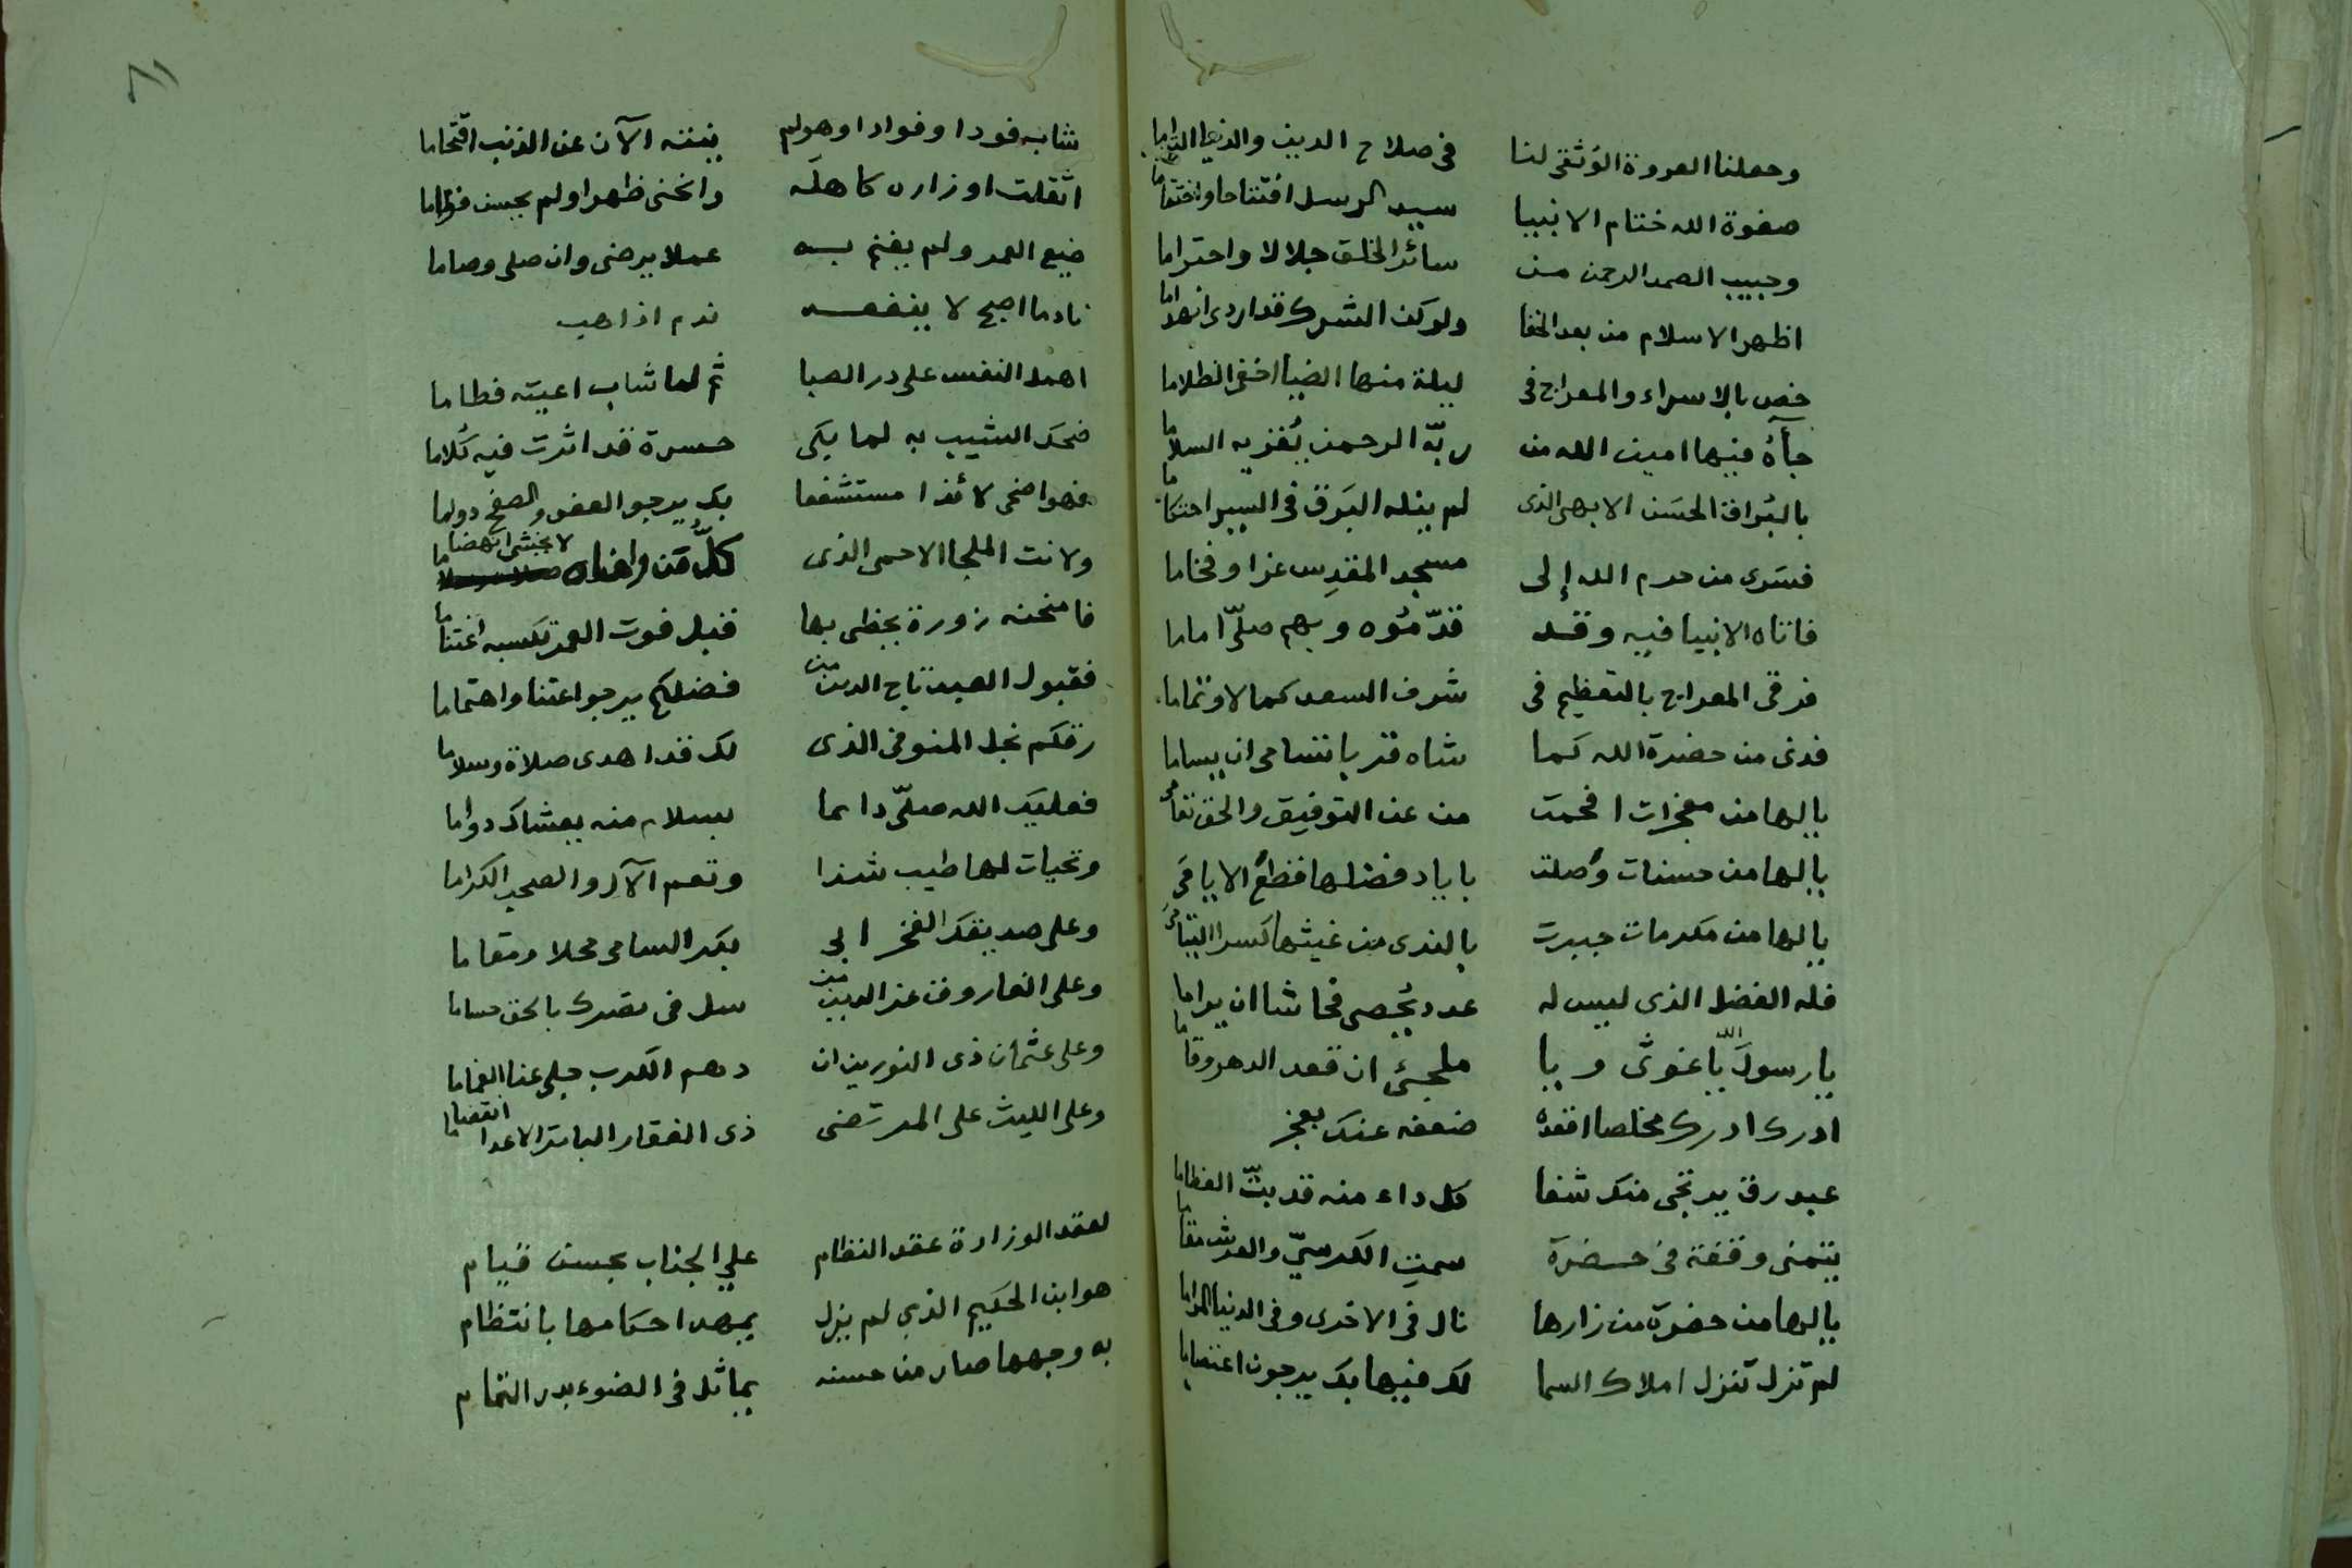 وجعلنا العروة الوثقى لنا في صلاح الدين والدنيا
صفوة الله ختام الانبيا سيد الرسل افتتاحا واختتاما
وحبيب الصمد الرحمن من سائر الخلق جلالا واحتراما
اظهر الاسلام من بعد الخفا ولركن الشرك قد اردى انهداما
خص بالاسراء والمعراج في ليلة منها الضيا اخفى الظلاما
جآءه فيها امين الله من ربّه الرحمن يُقريه السلاما
بالبُراق الحسَن الابهى الذى لم ينله البَرق في السير احتكاما
فسَرى من حرم الله إلى مسجد المقدِس عزا وفخاما
فاتاه الانبيا فيه وقد قدّمُوه وبهم صلّى اماما
فرقى المعراج بالتعظيم في شرف السعد كمالا وتماما
فدنى من حضرة الله كما شاه قربا تتسامى ان يساما
يالها من معجزات افحمت من عن التوفيق والحق تعامى
يالها من حسنات وُصلت باياد فضلها قطعُ الايامَى
يالها من مكرمات جبرت بالندى من غيثها كسر اليتامَى
فله الفضل الذى ليس له عدد يُحصى فحاشا ان يراما
يا رسولَ اللّه يا غوثى ويا ملجئى ان قعد الدهر وقاما
ادرك ادرك مخلصا اقعده ضعفه عنك بعجز
عبد رق يرتجى منك شفا كل داء منه قد بتّ العظاما
يتمنى وقفة في حضرة سمتِ الكرسيّ والعرش مقاما
يالها من حضرة من زارها نال في الاخرى وفى الدنيا المراما
لم تزل تنزل املاك السما لك فيها بك يرجون اعتصاما
٨١
شابه فودا وفوادا وهو لم ينته الآن عن الذنب اقتحاما
اثقلت اوزاره كاهله وانحنى ظهرا ولم يحسن قواما
ضيع العمر ولم يغنم به عملا يرضى وان صلى وصاما
نادما اصبح لا ينفعه ندم اذ اهب
اهمل النفس على در الصبا ثم لما شاب اعيته فطاما
ضحك الشيب به لما بكى حسرة قد اثرت فيه كُلاما
فهو اضحى لائذا مستشفعا بك يرجو العفو والصفح دواما
ولانت الملجا الاحمى الذى كلُّ مَن وافاه لا يخشى انهضاما
فامنحنه زورة يحظى بها قبل فوت العمر تكسبه اغتناما
فقبول العبد تاج الدين من فضلكم يرجو اعتنا واهتماما
رقكم نجل المنوفى الذى لك قد اهدى صلاة وسلاما
فعليك الله صلّى دايما بسلام منه يغشاك دواما
وتحيات لها طيب شذا وتعم الآل والصحب الكراما
وعلى صديقك الفخر ابى بكر السامى محلا ومقاما
وعلى الفاروق عز الدين من سل في نصرك بالحق حساما
وعلى عثمان ذى النورين ان دهم الكرب جلى عنا الغماما
وعلى الليث على المرتضى ذى الفقار الباتر الاعدا انقصاما
لعقد الوزارة عقد النظام علي الجناب بحسن قيام
هو ابن الحكيم الذي لم يزل يمهد احكامها بانتظام
به وجهها صار من حسنه يماثل في الضوء بدر التمام